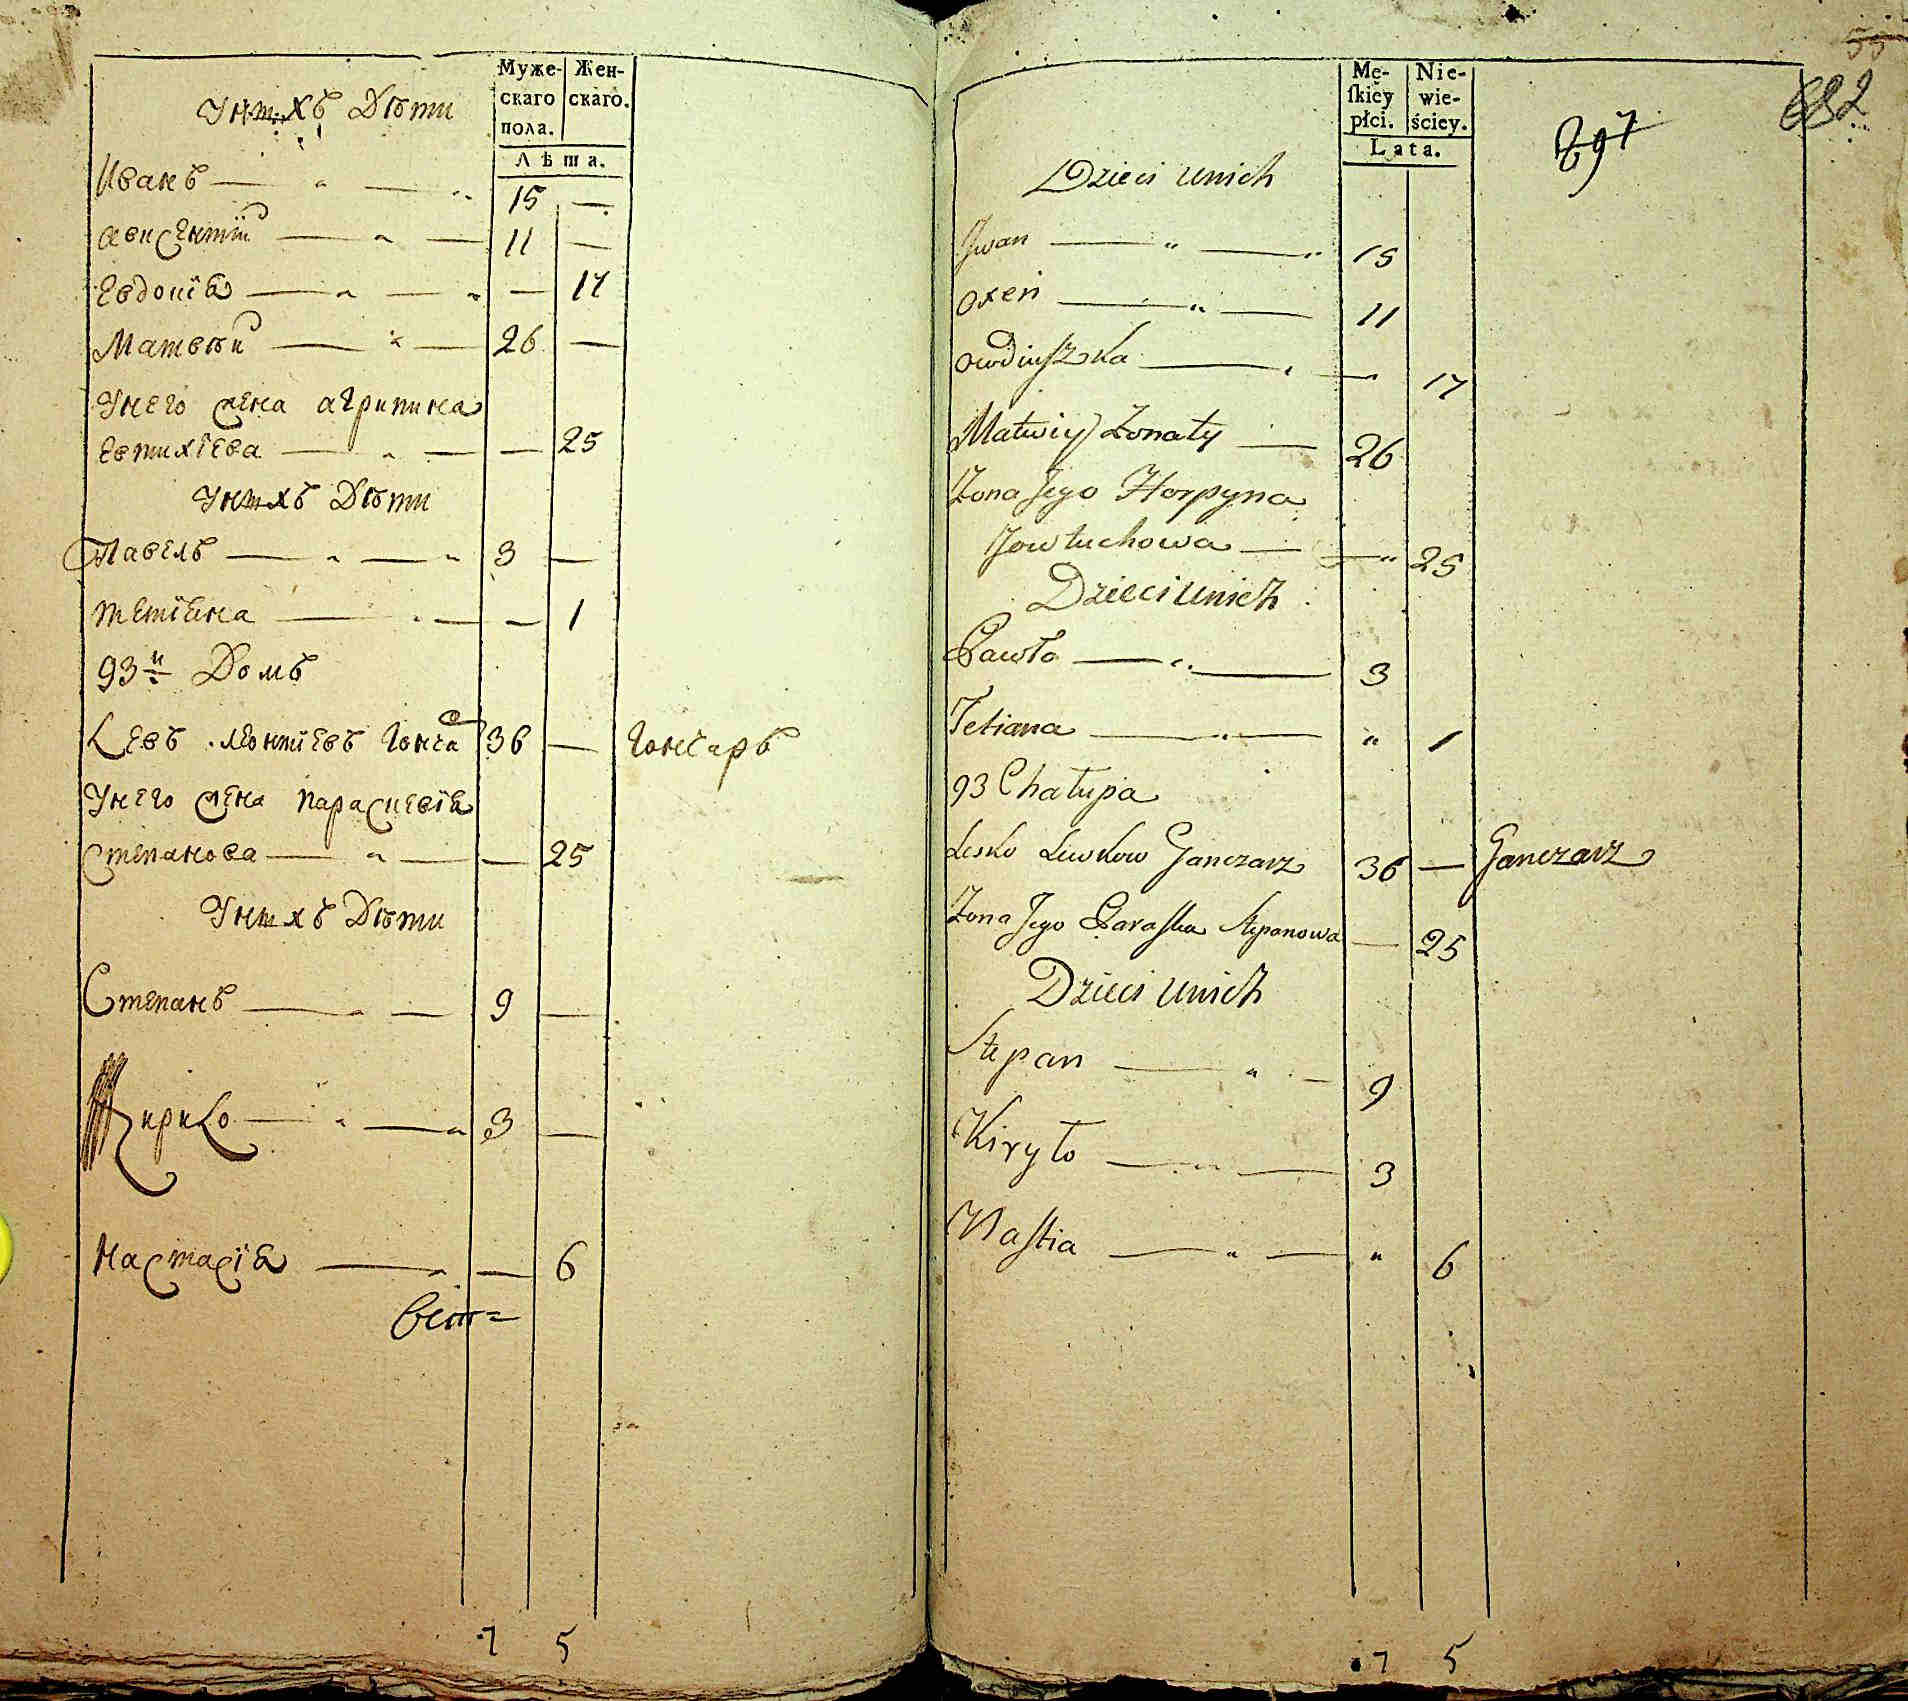 Муже- Жен-
скаго скаго.
пола.
Лѣта.
У нихъ Дѣти
Иванъ 15 —
Авксентій 11 —
Евдокія — 17
Матвѣй 26 —
У него жена агрипина
Евтихіева — 25
У нихъ Дѣти
Павелъ 3 —
Тетіяна — 1
93й Домъ
Левъ Леонтіевъ Гонча 36 — Гончаръ
У него жена параскевія
Степанова — 25
У нихъ Дѣти
Степанъ 9 —
Кирило 3 —
Настасія — 6
7 5
55
682
897
Mę- Nie-
ſkiey wie-
płci. ściey.
Lata.
Dzieci unich
Jwan 15
Oxen 11
Owdiuszka 17
Matwiy Żonaty 26
Żona Jego Horpyna
Jowtuchowa 25
Dzieci unich
Pawło 3
Tetiana " 1
93 Chałupa
Lesko Lewkow Ganczarz 36 — Ganczarz
Żona Jego Paraska Stepanowa — 25
Dzieci unich
Stepan 9
Kiryło 3
Nastia " 6
7 5